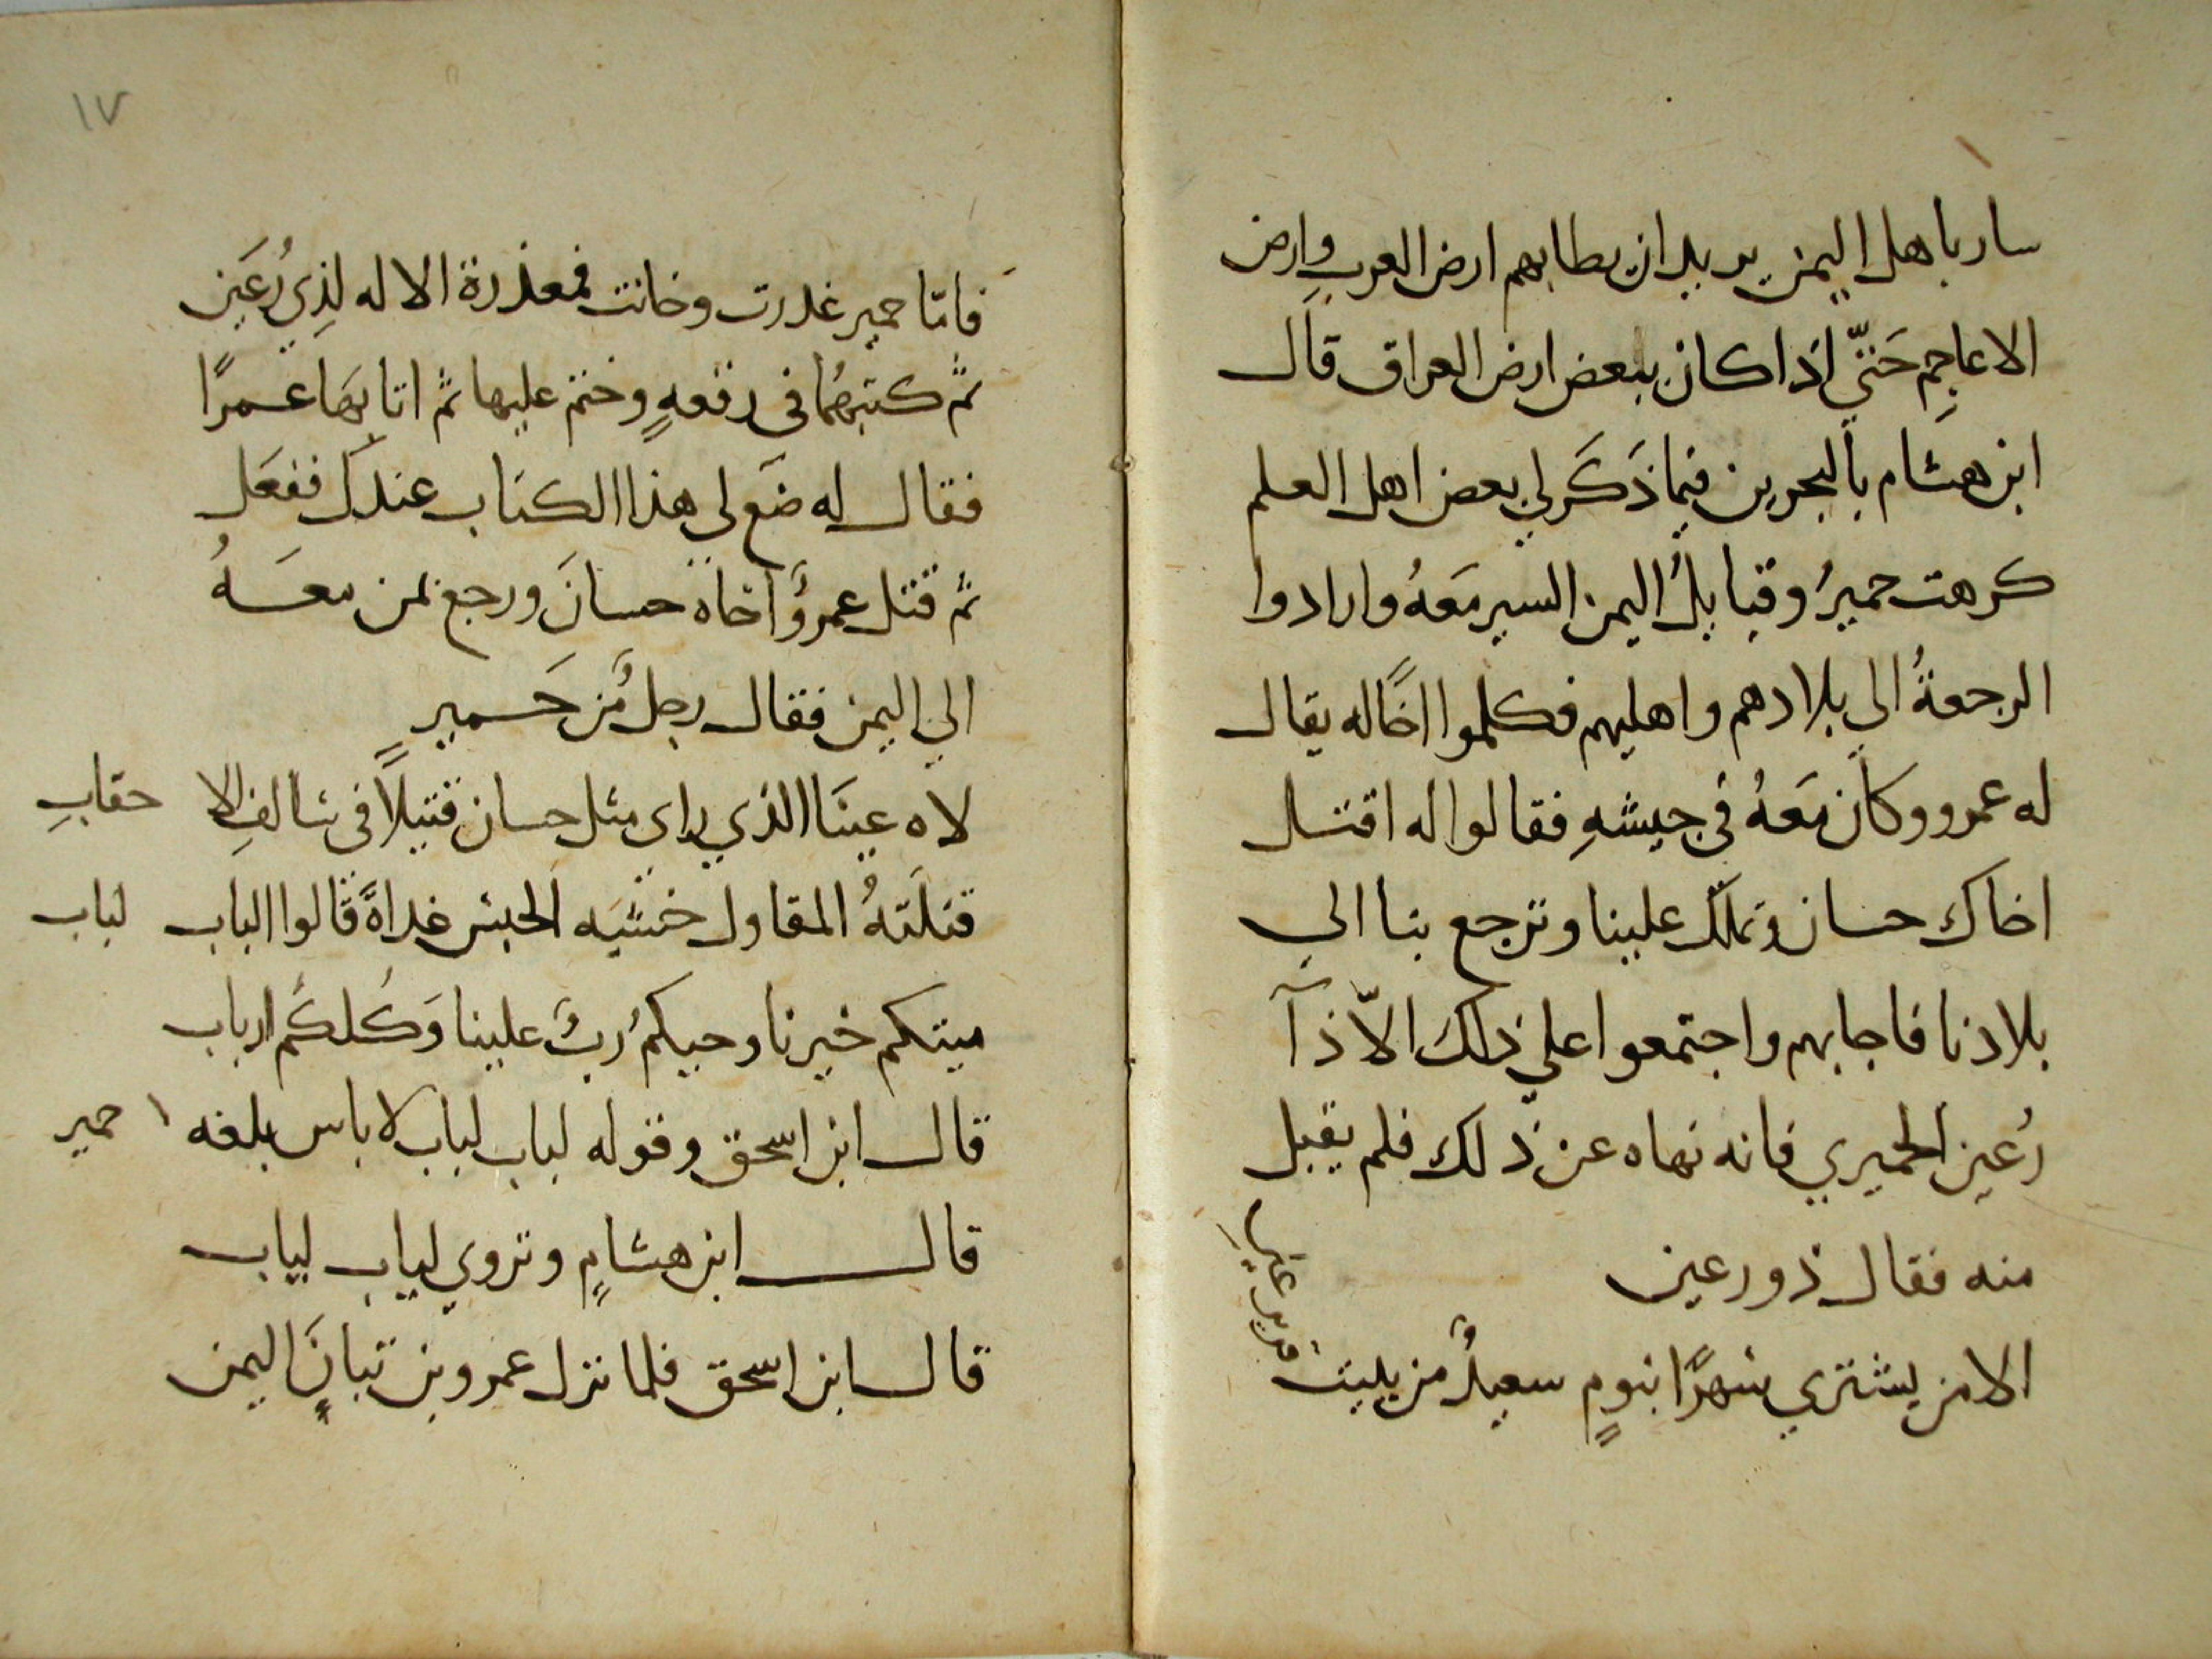 سار باهل اليمن يريد ان يطا بهم ارض العرب وارض
الاعاجِم حَتّي اذا كان ببعض ارض العراق قال
ابن هشام بالبحرين فيما ذَكَر لي بعض اهل العلم
كرهت حميرُ وقبايلُ اليمن السير مَعَهُ وارادوا
الرجعةُ الي بلادهم واهليهم فكلموا اخًا له يقال
له عمرو وكان مَعَهُ في جيشهِ فقالوا له اقتل
اخاك حسان ونملّك علينا وترجع بنا الي
بلادنا فاجابهم واجتمعوا علي ذلك الاّ ذآ
رُعين الحميري فانه نهاه عن ذلك فلم يقبل
منه فقال ذو رعين
الا من يشتري سَهرًا بنومٍ سعيدٌ من يبيت
قرير عينِ
١٧
فامّا حمير غدرت وخانت فمعذرة الاله لِذِي رُعَين
ثم كتبهُما في رقعهٍ وختم عليها ثم اتا بهَا عمرًا
فقال له ضَع لي هذا الكتاب عندك ففعَل
ثم قتل عمروٌ اخاه حسانَ ورجع بمن معَهُ
الي اليمن فقال رجلٌ مِن حَميرٍ
لاه عينَا الذي راي مثل حسان قتيلاً في سالفِ الا حقابِ
قتلَتهُ المقاول خشيَه الحبس غداةً قالوا الباب لباب
ميتكم خيرنا وحيكمُ ربٌ علينا وَكُلكُم ارباب
قال ابن اسحق وقوله لباب لباب لا باس بلغه ١ حمير
قال ابن هشامٍ وتروي لباب لباب
قال ابن اسحق فلما نزل عمرو بن تبانَ اليمن